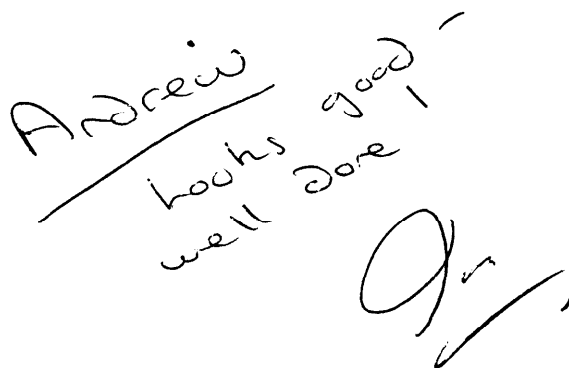 Andrew
Looks good -
well done!